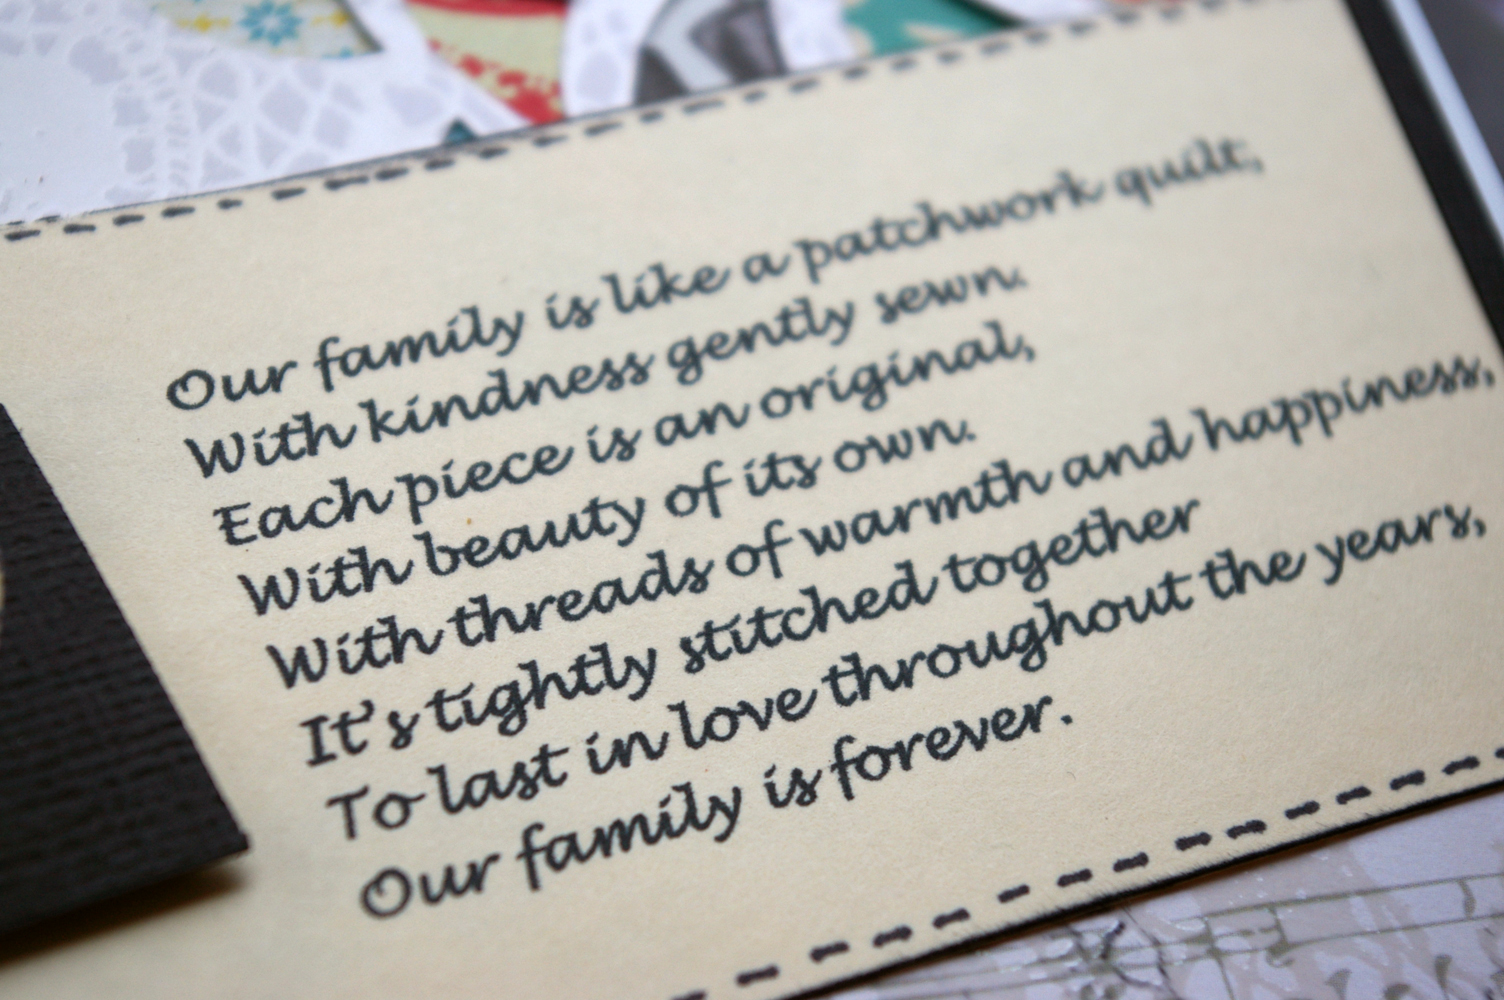 Our family is like a patchwork quilt,
With kindness gently sewn.
Each piece is an original,
With beauty of its own.
With threads of warmth and happiness,
It's tightly stitched together
To last in love throughout the years,
Our family is forever.